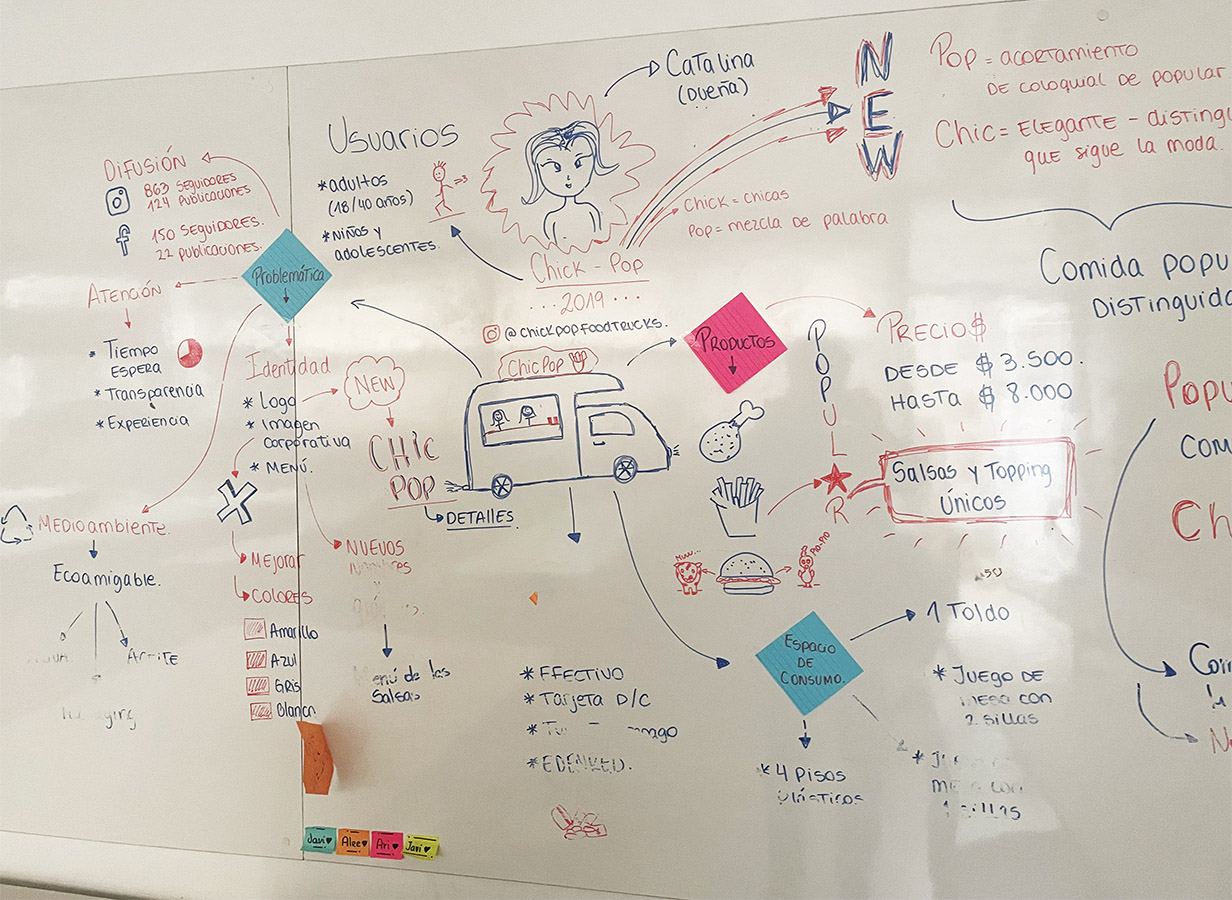 Usuarios
*adultos
(18/40 años)
*Niños y
adolescentes.
Catalina
(Dueña)
NEW
Pop = acortamiento
de coloquial de popular
Chic = Elegante - disting
que sigue la moda.
Chick = chicas
Pop = mezcla de palabra
Comida popu
distinguida
Difusión
863 Seguidores
124 Publicaciones
150 Seguidores.
22 publicaciones.
Problemática
Atención
* Tiempo
espera
* Transparencia
* Experiencia
Identidad
* Logo
* Imagen
corporativa
* Menú.
NEW
Chic
Pop
Detalles
Medioambiente.
Ecoamigable.
Aceite
Mejorar
Colores
Amarillo
Azul
Gris
Blanco
Nuevos
Menú de las
Salsas
Chick - Pop
...2019...
@chickpopfoodtrucks.
Chic Pop
Productos
POPUL★R
Precio$
desde $ 3.500.
hasta $ 8.000
Salsas y Topping
Únicos
Muu...
Pio-Pio
Popu
com
Ch
* Efectivo
* Tarjeta D/C
* Edenred.
Espacio
de
Consumo.
1 Toldo
* Juego de
mesa con
2 sillas
* 4 Pisos
plásticos
mesa con
sillas
Javi♥
Alee♥
Ari♥
Javi♥